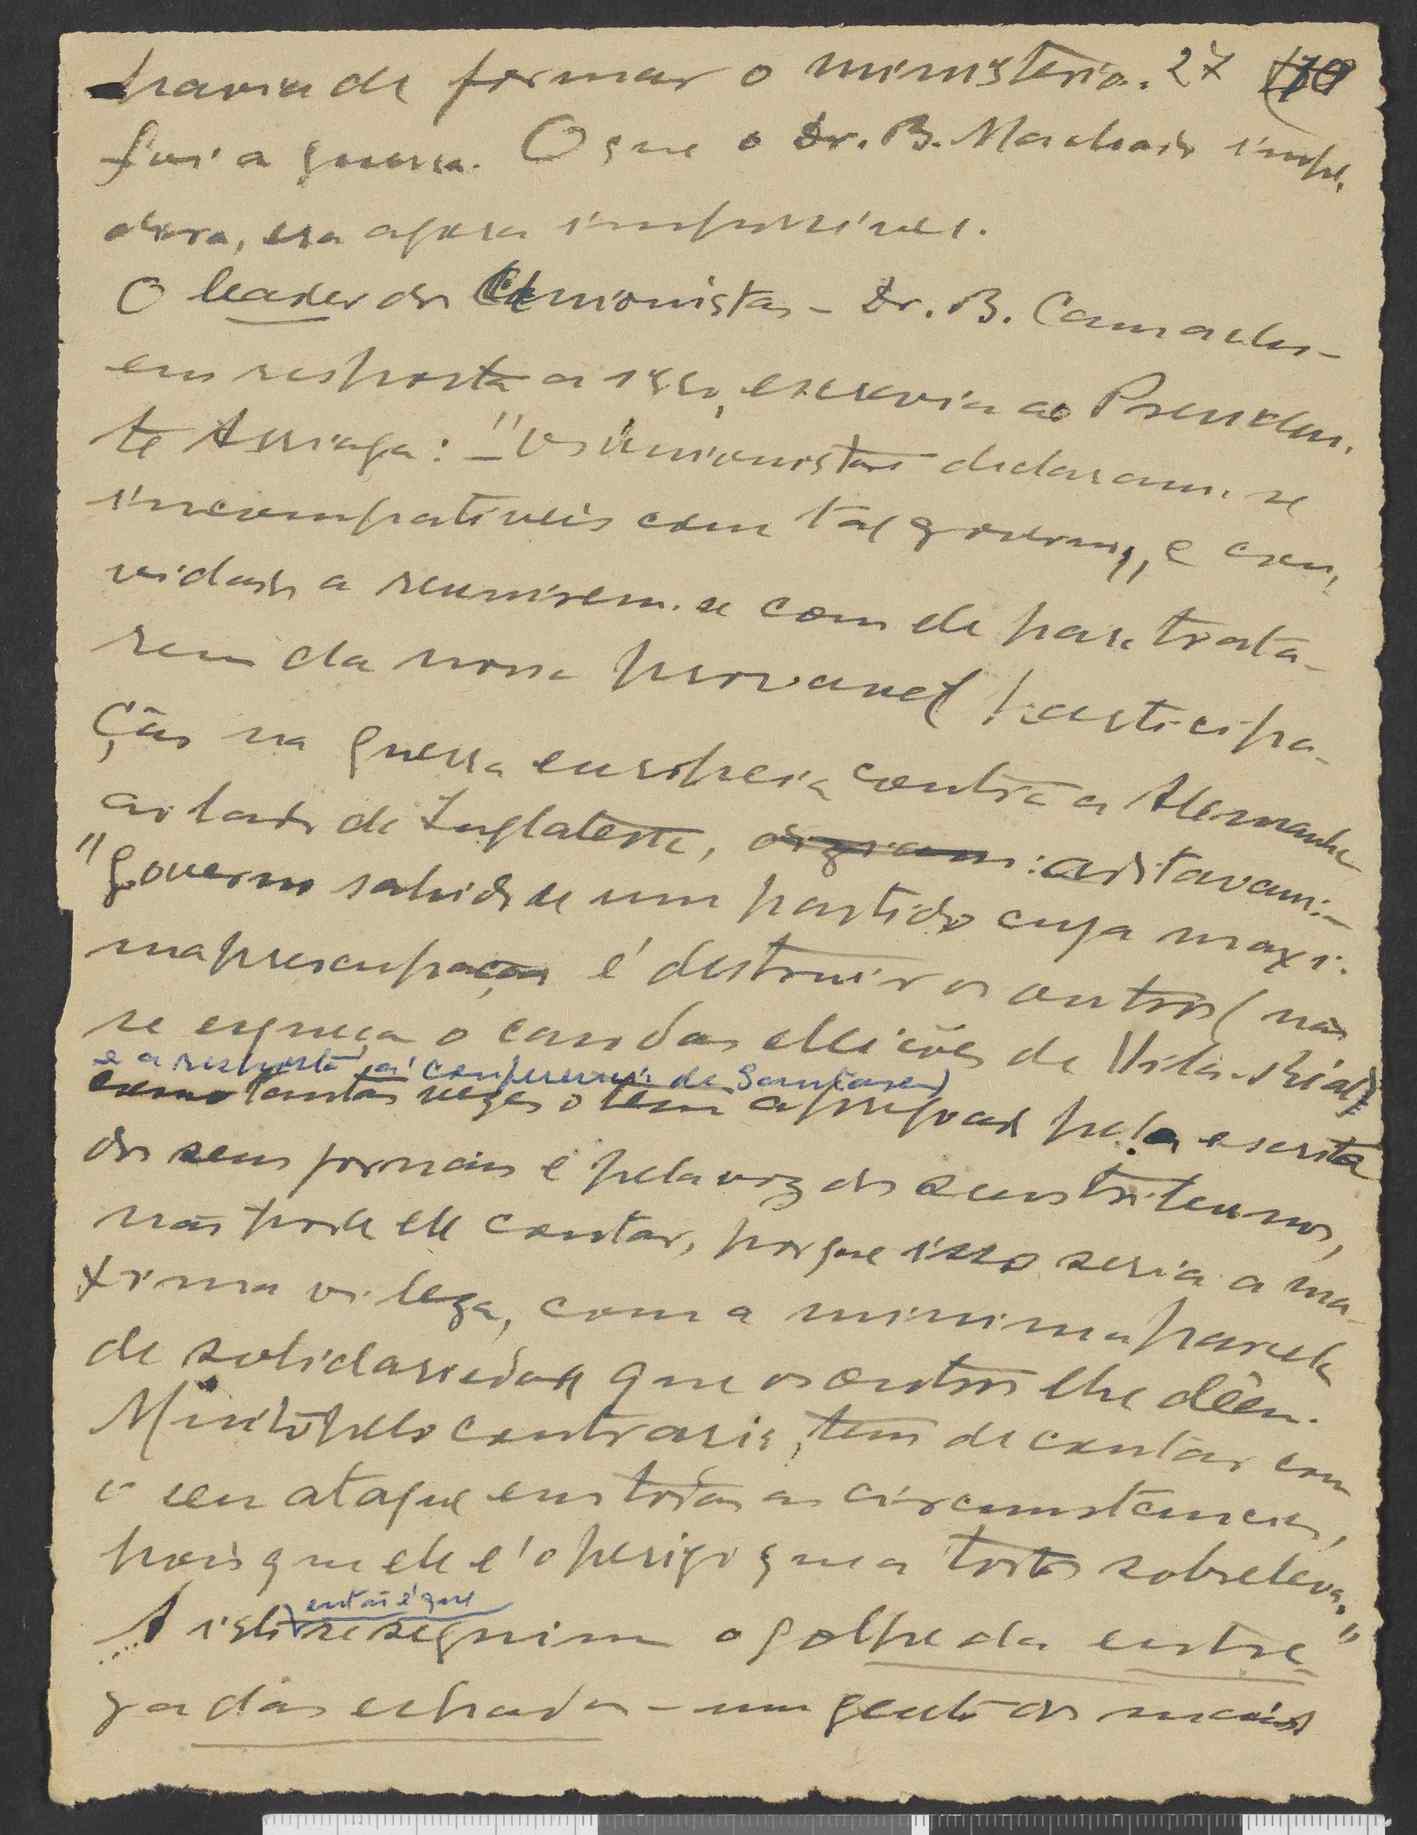 havia de formar o ministerio. 27
foi a guerra. O que o Dr. B. Machado impl-
orara, era agora impossivel.
O leader dos Unionistas - Dr. B. Camacho -
em resposta a isso, escrevia ao Presiden-
te Arriaga: - "Os unionistas declaram-se
incompativeis com tal governo", e con-
vidados a reunirem-se com ele para trata-
rem da nossa provavel participa-
ção na guerra europeia contra a Alemanha
ao lado de Inglaterra, diziam: aditavam: -
"governo sahido de um partido cuja maxi-
ma preocupação é destruir os outros (não
se esqueça o caso das eleições de Vila-Rial)
e a resposta á conferencia de Santarem)
como tantas vezes o tem apregoado pela escrita
dos seus jornais e pela voz dos seus tribunos,
não pode ele contar, porque isso seria a ma-
xima vileza, com a minima parcela
de solidariedade que os outros lhe dêem.
Muito pelo contrario, tem de contar com
o seu ataque em todas as circumstancias,
pois que ele é o perigo que a todos sobreleva."
então é que
A isto se seguiu o golpe da entre-
ga das espadas - um gesto dos mais